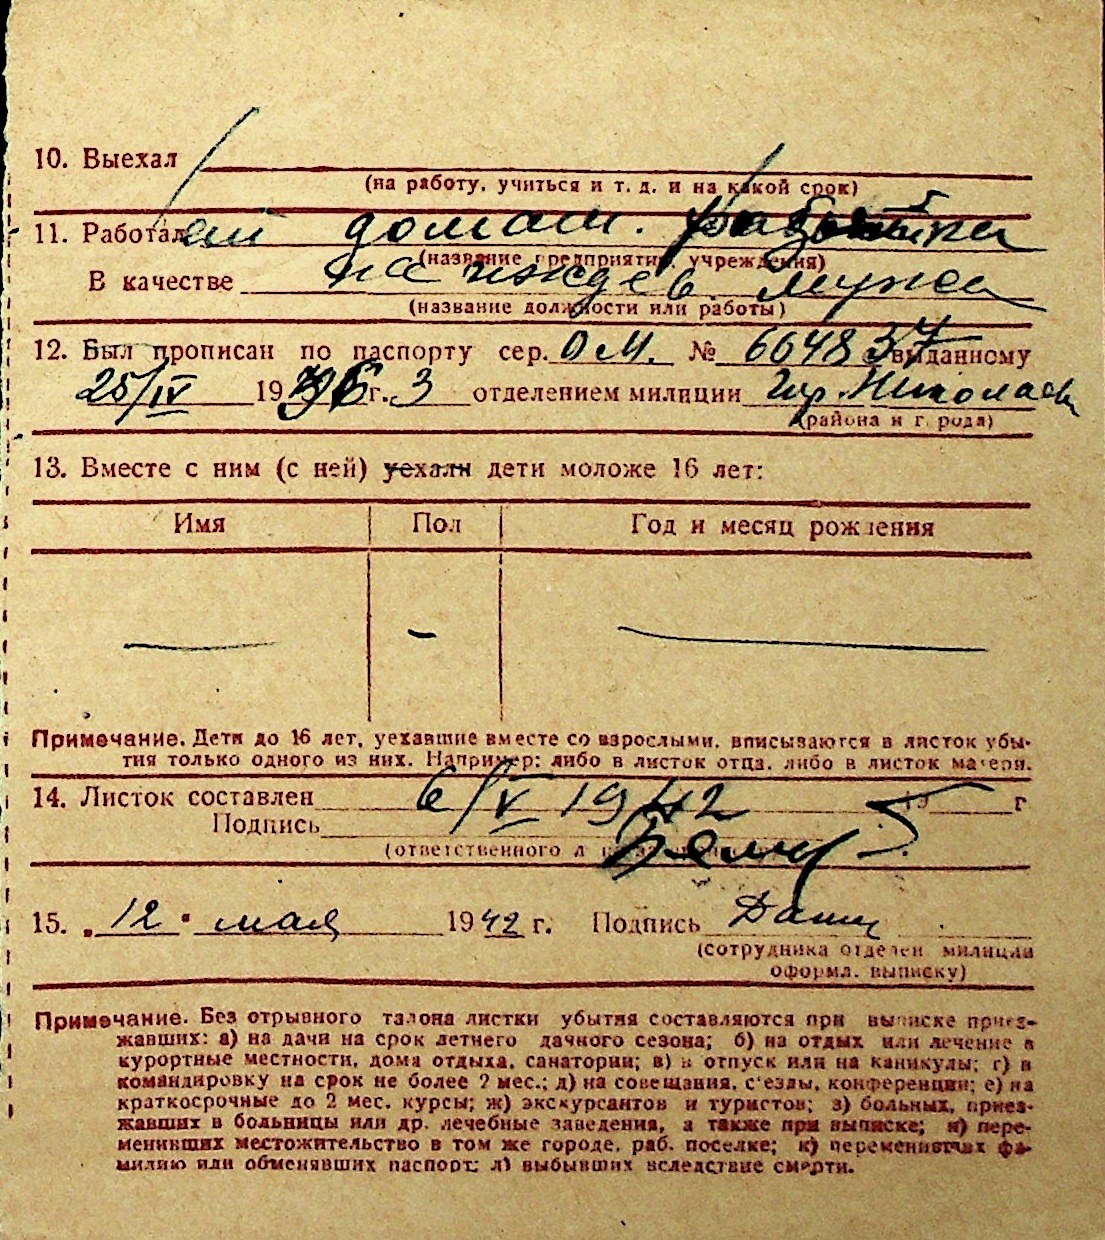 10. Выехал
(на работу, учиться и т. д. и на какой срок)
11. Работал ай домаш. работница
(название предприятия, учреждения)
В качестве на иждев. мужа
(название должности или работы)
12. Был прописан по паспорту сер. ОМ. № 664837 выданному
25/IV 1936 г. 3 отделением милиции гор. Николаев
(района и города)
13. Вместе с ним (с ней) уехали дети моложе 16 лет:
Имя Пол Год и месяц рождения
— - —
Примечание. Дети до 16 лет, уехавшие вместе со взрослыми, вписываются в листок убы-
тия только одного из них. Например: либо в листок отца, либо в листок матери.
14. Листок составлен 6/V 1942 19 г
Подпись
(ответственного
15. 12 " мая 1942 г. Подпись
(сотрудника отделен милиции
оформл. выписку)
Примечание. Без отрывного талона листки убытия составляются при выписке приез-
жавших: а) на дачи на срок летнего дачного сезона; б) на отдых или лечение в
курортные местности, дома отдыха, санатории; в) в отпуск или на каникулы; г) в
командировку на срок не более 2 мес.; д) на совещания, с'езды, конференции; е) на
краткосрочные до 2 мес. курсы; ж) экскурсантов и туристов; з) больных, приез-
жавших в больницы или др. лечебные заведения, а также при выписке; и) пере-
менивших местожительство в том же городе, раб. поселке; к) переменивших фа-
милию или обменявших паспорт; л) выбывших вследствие смерти.